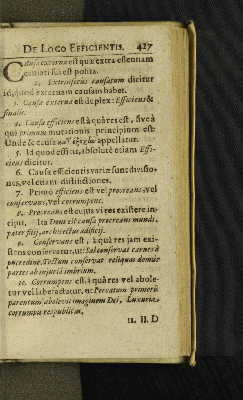 DE LOCO EFFICIENTIS. 427
Causa externa est quæ extra essentiam
causati sui est posita.
2. Extrinsecus causatum dicitur
id, quod externam causam habet.
3. Causa externa est duplex: Efficiens &
finalis.
4. Causa efficiens est à quâ res est, sive à
quâ primum mutationis principium est.
Unde & causa κατ' ἐξοχὴν appellatur.
5. Id quod efficit, absolutè etiam Effi-
ciens dicitur.
6. Causæ efficientis variæ sunt divisio-
nes, vel etiam distinctiones.
7. Primò efficiens est vel procreans; vel
conservans, vel corrumpens.
8. Procreans est cujus vi res existere in-
cipit. Ita Deus est causa procreans mundi,
pater filij, architectus ædificij.
9. Conservans est, à quâ res jam exi-
stens conservatur, ut: Sal conservat carnes à
putredine. Tectum conservat reliquas domûs
partes ab injuriâ imbrium.
10. Corrumpens est, à quâ res vel abole-
tur vel labefactatur, ut: Peccatum primorũ
parentum abolevit imaginem Dei, Luxuria
corrumpit rempublicam.
11. II. D